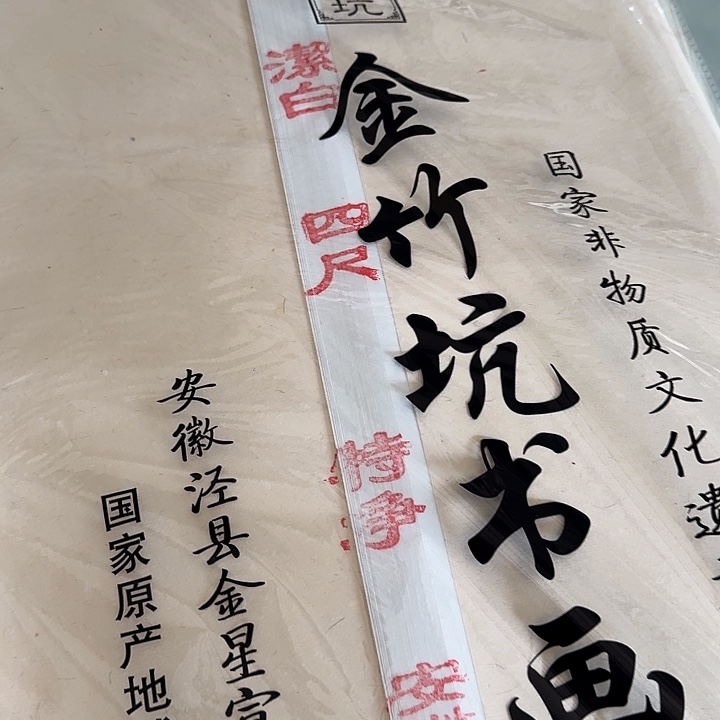 国家非物质文化遗
坑
金竹坑书画
潔白
四尺
特净
安
安徽泾县金星宣
国家原产地